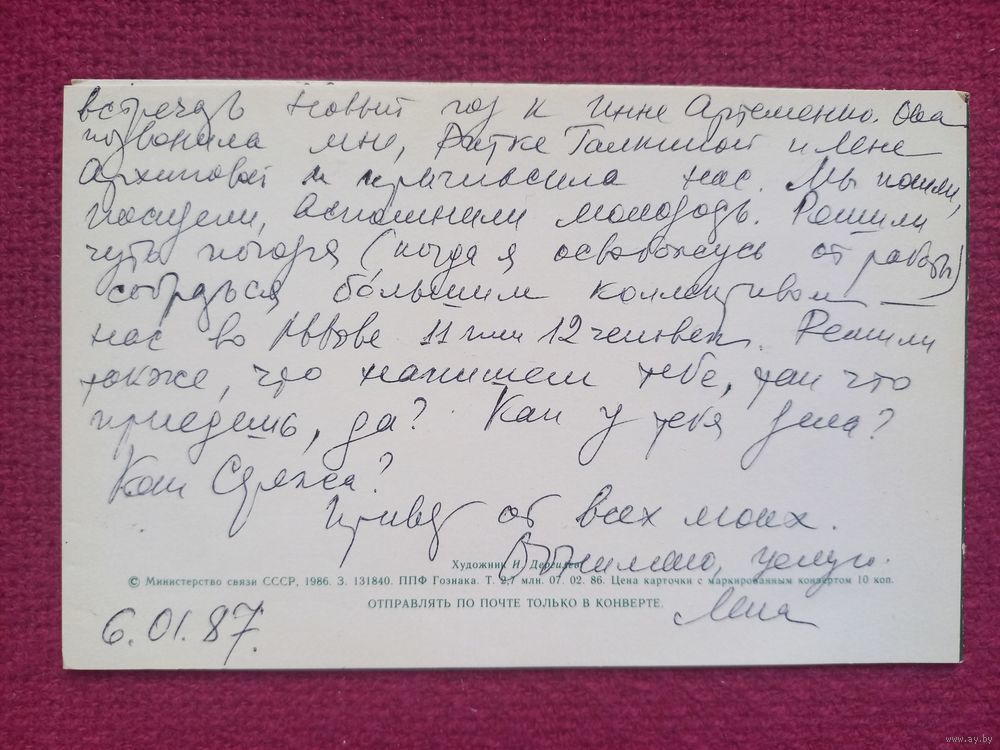 встречать Новый год к Инне Артеменко. Она
позвонила мне, Галкиной и Лене
Архиповой и пригласила нас. Мы пошли,
посидели, вспомнили молодость. Решили
чуть погодя (когда я освобожусь от работы)
собраться большим коллективом —
нас во Львове 11 или 12 человек. Решили
также, что напишем тебе, так что
приедешь, да? Как у тебя дела?
Как Сережа?
Привет от всех моих.
Обнимаю, целую.
Художник И. Дергилев
© Министерство связи СССР, 1986. З. 131840. ППФ Гознака. Т. 2,7 млн. 07. 02. 86. Цена карточки с маркированным конвертом 10 коп.
ОТПРАВЛЯТЬ ПО ПОЧТЕ ТОЛЬКО В КОНВЕРТЕ.
Лена
6.01.87.
www.ay.by